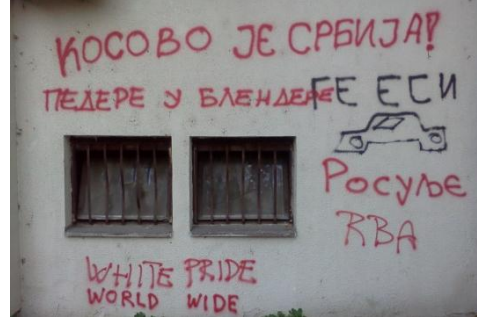 КОСОВО ЈЕ СРБИЈА!
ПЕДЕРЕ У БЛЕНДЕРЕ
ГЕ ЕСИ
Росуље
RBA
WHITE PRIDE
WORLD WIDE